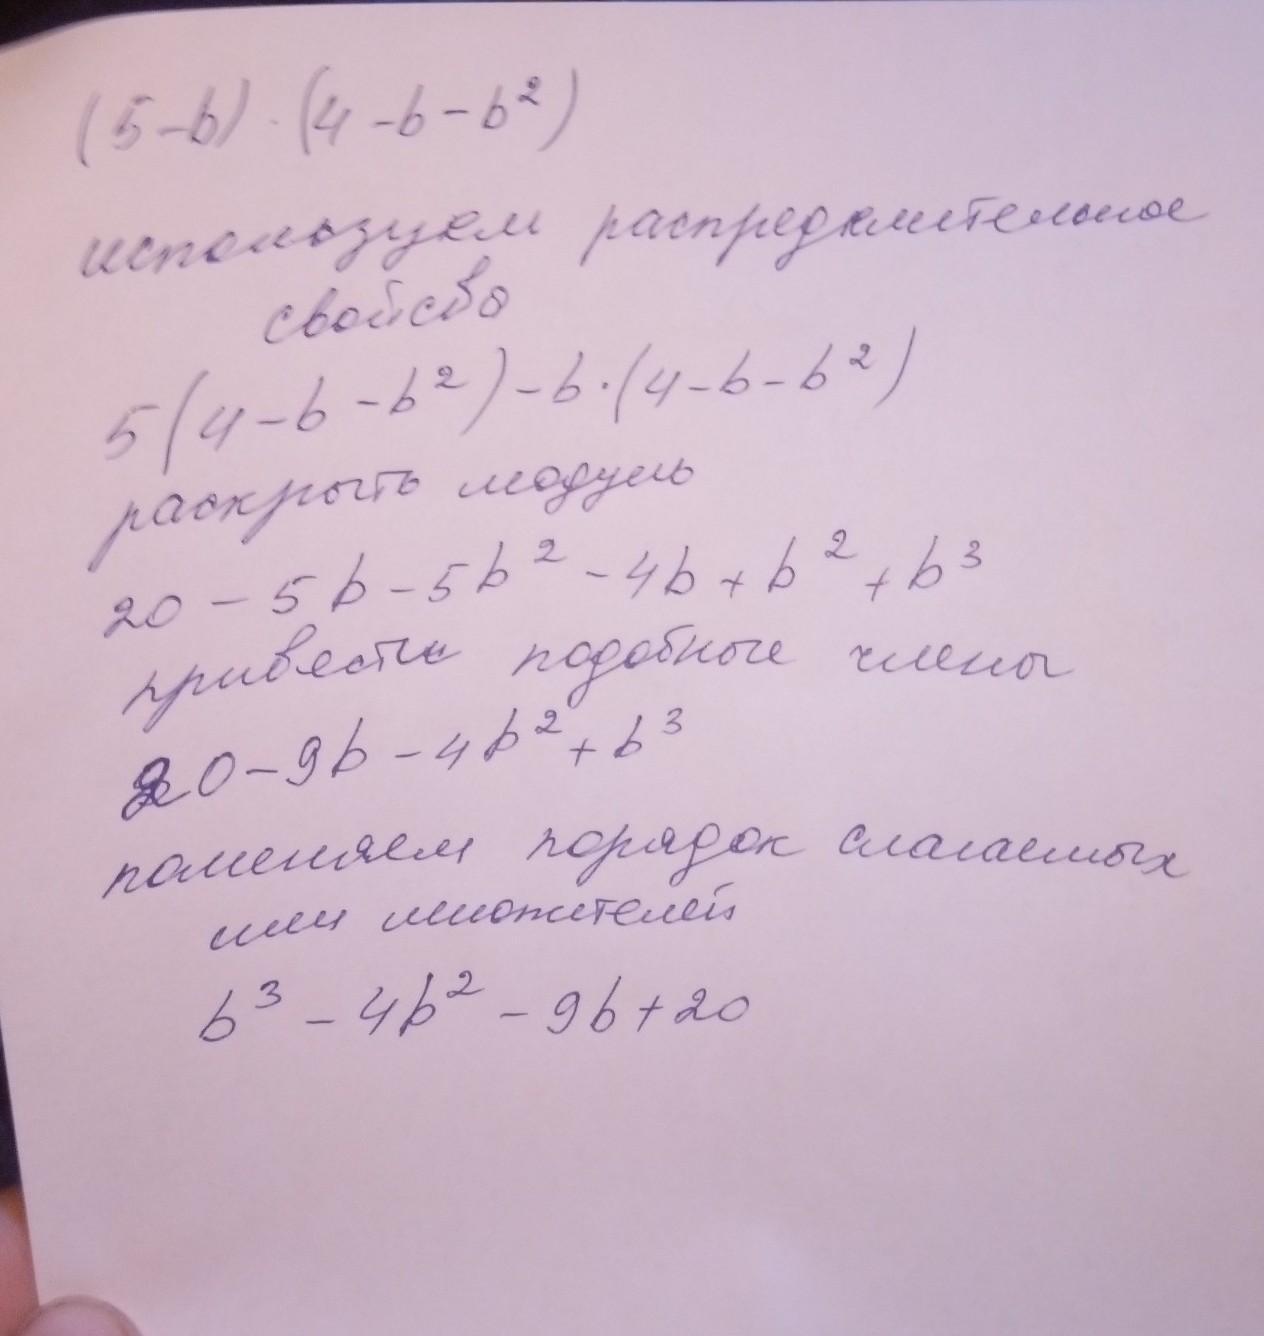 (5-b)·(4-b-b²)
используем распределительное
свойство
5(4-b-b²)-b·(4-b-b²)
раскрыть модуль
20-5b-5b²-4b+b²+b³
привести подобные члены
20-9b-4b²+b³
поменяем порядок слагаемых
или множителей
b³-4b²-9b+20